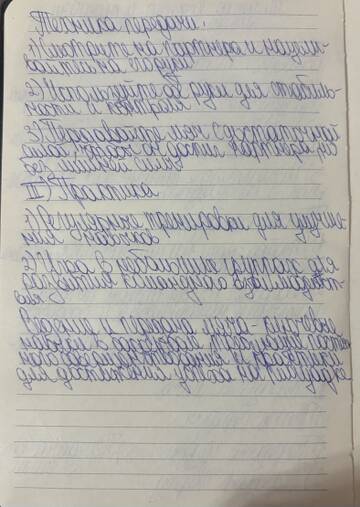 Техника передачи:
1) Смотрите на партнера и нацели-
вайтесь на грудь
2) Используйте обе руки для стабиль-
ности и контроля
3) Передавайте мяч с достаточной
силой, чтобы он достиг партнера, но
без лишней силы
II) Практика
1) Регулярные тренировки для улучше-
ния навыков
2) Игра в небольших группах для
развития командного взаимодейст-
вия
Ведение и передача мяча - ключевые
навыки в баскетболе, требующие
для достижения успеха на площадке